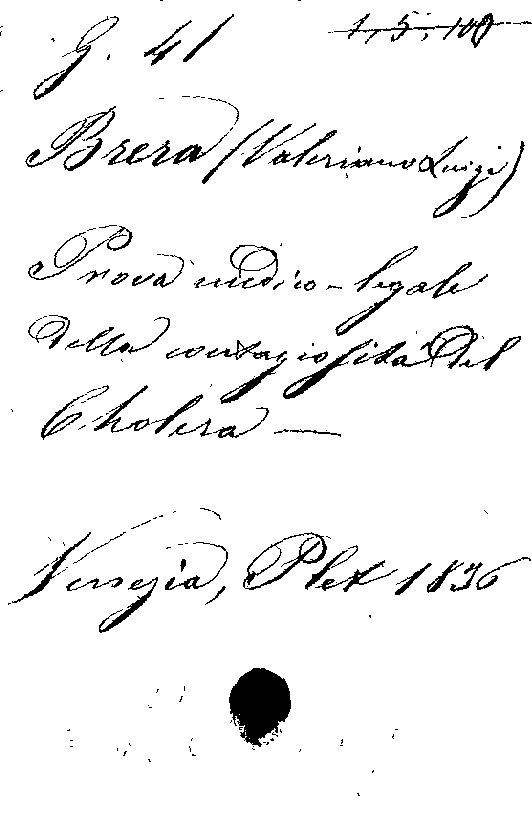 G. 41 1, 5, 100
Brera (Valeriano Luigi)
Prova medico-legale
della contagiosità del
Cholera —
Venezia, Plet 1836